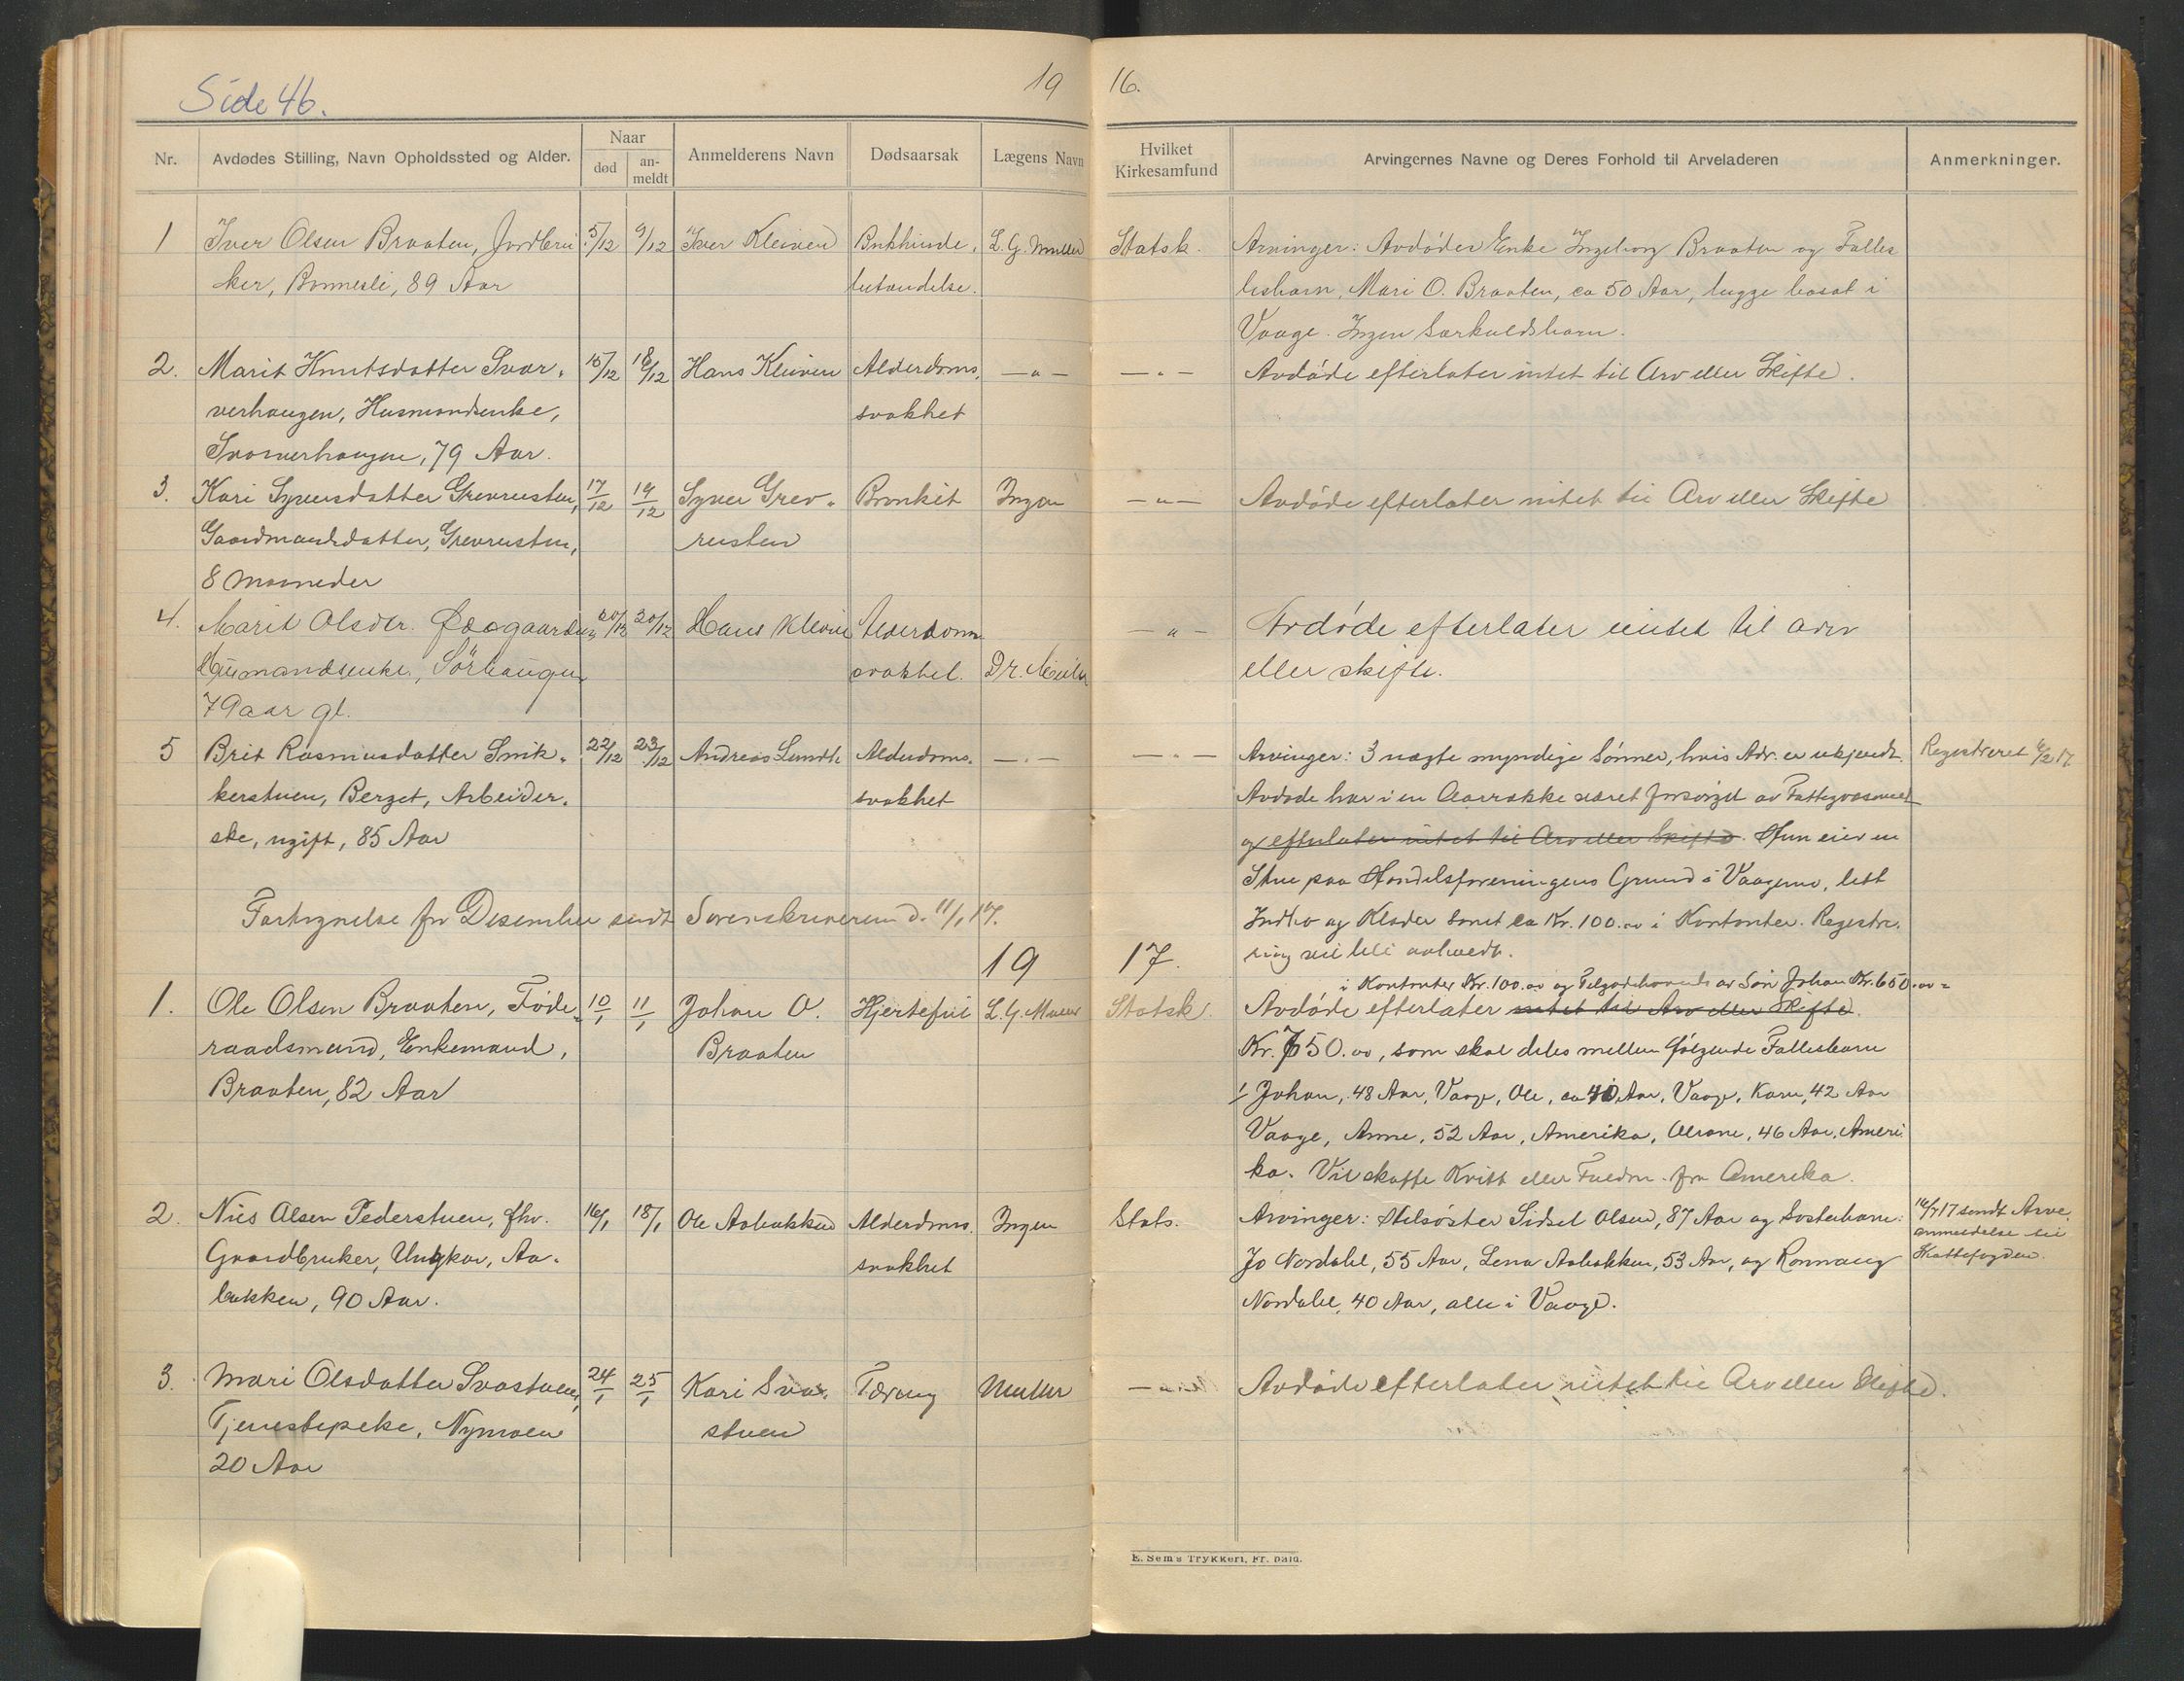 Side 46.
19 16.
Nr. Avdødes Stilling, Navn Opholdssted og Alder. Naar død an-meldt Anmelderens Navn Dødsaarsak Lægens Navn Hvilket Kirkesamfund Arvingernes Navne og Deres Forhold til Arveladeren Anmerkninger.
1 Iver Olsen Braaten, Jordbru 5/12 9/12 Iver Kleiven Bukhinde, L. G. Müller Statsk. Arvinger: Avdødes Enke Ingeborg Braaten og Fælles
ker, 89 Aar betændelse. Mari O. Braaten, ca 50 Aar, begge bosat i
Vaage. Ingen Særkuldsbarn.
2. Marit Knutsdatter Svar- 15/12 18/12 Hans Kleiven Alderdoms, —"— —"— Avdøde efterlater intet til Arv eller Skifte.
verhaugen, Husmandsenke, svakhet
Svarverhaugen, 79 Aar.
3. Kari Syversdatter Grevrusten, 17/12 19/12 Syver Grev- Bronkit Ingen —"— Avdøde efterlater intet til Arv eller Skifte
Gaardmandsdatter, Grevrusten, rusten
8 Maaneder
4. Marit Olsdtr. 20/12 20/12 Hans Kleiven Alderdoms —"— Avdøde efterlater intet til arv
Husmandsenke, Sörhaugen svakhet. Dr. Müller eller skifte.
79 aar gl.
5 Brit Rasmusdatter Snik- 22/12 23/12 Andreas Sundt Alderdoms- —"— —"— Arvinger: 3 uægte myndige Sønner, hvis Adr. er ukjendt. Registreret 6/2 17.
kerstuen, Berget, Arbeider- svakhet Avdøde har i en Aarrække været forsørget av Fattigvæsenet
ske, ugift, 85 Aar og efterlater intet til Arv eller Skifte. Hun eier en
Stue paa Handelsforeningens Grund i Vaagemo, litt
Fortegnelse for Desember sendt Sorenskriveren d. 11/1 17. Indbo og Klæder samt ca Kr. 100.00 i Kontanter. Registre-
ring vil bli avholdt.
19 17.
i Kontanter Kr. 100.00 og Tilgodehavende av Søn Johan Kr. 650.00 =
1. Ole Olsen Braaten, Føde- 10/1 11/1 Johan O. Hjertefeil L. G. Müller Statsk. Avdøde efterlater intet til Arv eller Skifte.
raadsmand, Enkemand, Braaten Kr. 750.00, som skal deles mellem følgende Fællesbarn
Braaten, 82 Aar 1/ Johan, 48 Aar, Vaage, Ole, ca 40 Aar, Vaage, Kari, 42 Aar
Vaage, Anne, 52 Aar, Amerika, 46 Aar, Ameri-
ka. Vil skaffe Kvitt eller Fuldm. fra Amerika.
2. Nils Olsen Pederstuen, fhv. 16/1 18/1 Ole Aabakken Alderdoms- Ingen Stats. Arvinger: Helsøster Sidsel Olsen, 87 Aar og Søsterbarn: 16/7 17 sendt Arve
Gaardbruker, Ungkar, Aa- svakhet Jo Nordahl, 55 Aar, Lena Aabakken, 53 Aar, og Rønnaug anmeldelse til
bakken, 90 Aar. Nordahl, 40 Aar, alle i Vaage. Skattefogden.
3. Mari Olsdatter Svastuen, 24/1 25/1 Kari Sva- Tæring Müller —"— Avdøde efterlater intet til Arv eller Skifte.
Tjenestepike, Nymoen stuen
20 Aar
E. Sem's Trykkeri, Fr. hald.